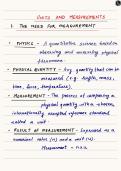 UNITS AND MEASUREMENTS
1. THE NEED FOR MEASUREMENT
• PHYSICS - A quantitative science based on
measuring and analysing physical
phenomena.
• PHYSICAL QUANTITY - Any quantity that can be
measured (e.g. length, mass,
time, force, temperature).
• MEASUREMENT - The process of comparing a
physical quantity with a chosen,
internationally accepted reference standard
called a unit.
• RESULT OF MEASUREMENT - Expressed as a
numerical value (n) and a unit (u).
Measurement = n×u